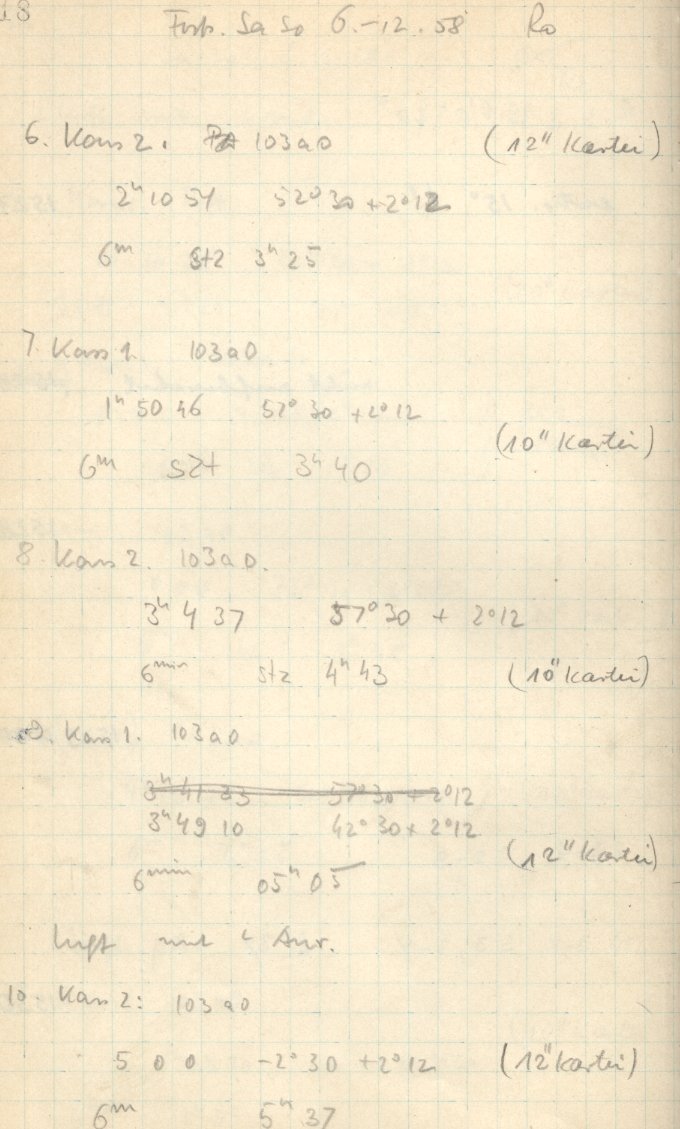 18
Forts. Sa So 6.-12.58 Ro
6. Kass 2. 103a0 (12" Kartei)
2ʰ 10 51 52° 30 + 2° 12
6ᵐ stz 3ʰ 25
7. Kass 1. 103a0
1ʰ 50 46 57° 30 + 2° 12
(10" Kartei)
6ᵐ szt 3ʰ 40
8. Kass 2. 103a0.
3ʰ 4 37 57° 30 + 2° 12
6ᵐⁱⁿ stz 4ʰ 43 (10" Kartei)
9. Kass 1. 103a0
3ʰ 41 33 57° 30 + 2° 12
3ʰ 49 10 42° 30 + 2° 12
(12" Kartei)
6ᵐⁱⁿ 05ʰ 05
10. Kass 2: 103a0
5 0 0 -2° 30 + 2° 12 (12" Kartei)
6ᵐ 5ʰ 37